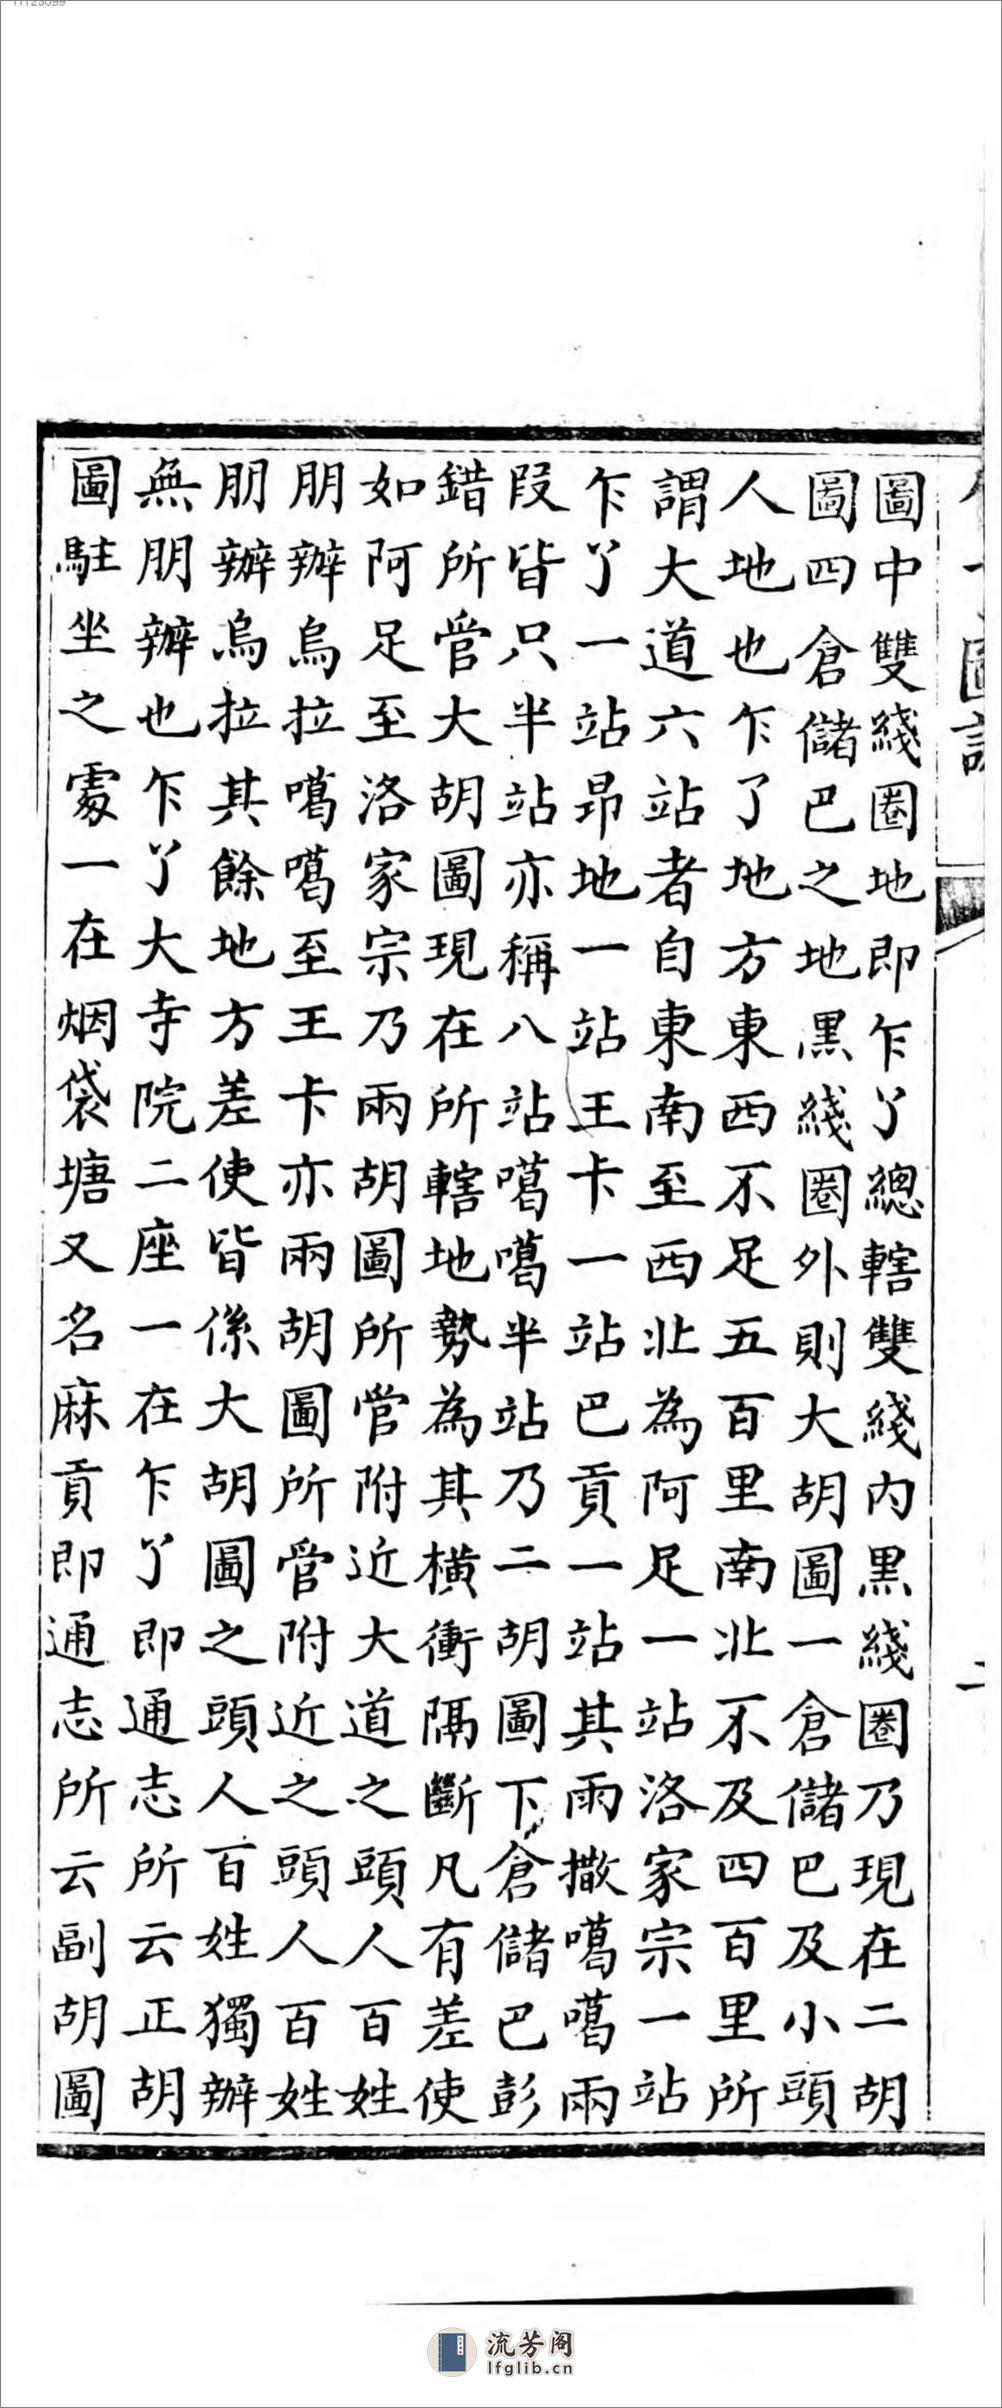 圖中雙綫圈地即乍丫總轄雙綫內黑綫圈乃現在二胡
圖四倉儲巴之地黑綫圈外則大胡圖一倉儲巴及小頭
人地也乍了地方東西不足五百里南北不及四百里所
謂大道六站者自東南至西北為阿足一站洛家宗一站
乍丫一站昂地一站王卡一站巴貢一站其雨撒噶噶兩
段皆只半站亦稱八站噶噶半站乃二胡圖下倉儲巴彭
錯所管大胡圖現在所轄地勢為其橫衝隔斷凡有差使
如阿足至洛家宗乃兩胡圖所管附近大道之頭人百姓
朋辦烏拉噶噶至王卡亦兩胡圖所管附近之頭人百姓
朋辦烏拉其餘地方差使皆係大胡圖之頭人百姓獨辦
無朋辦也乍丫大寺院二座一在乍丫即通志所云正胡
圖駐坐之處一在烟袋塘又名麻貢即通志所云副胡圖
流芳阁
lfglib.cn